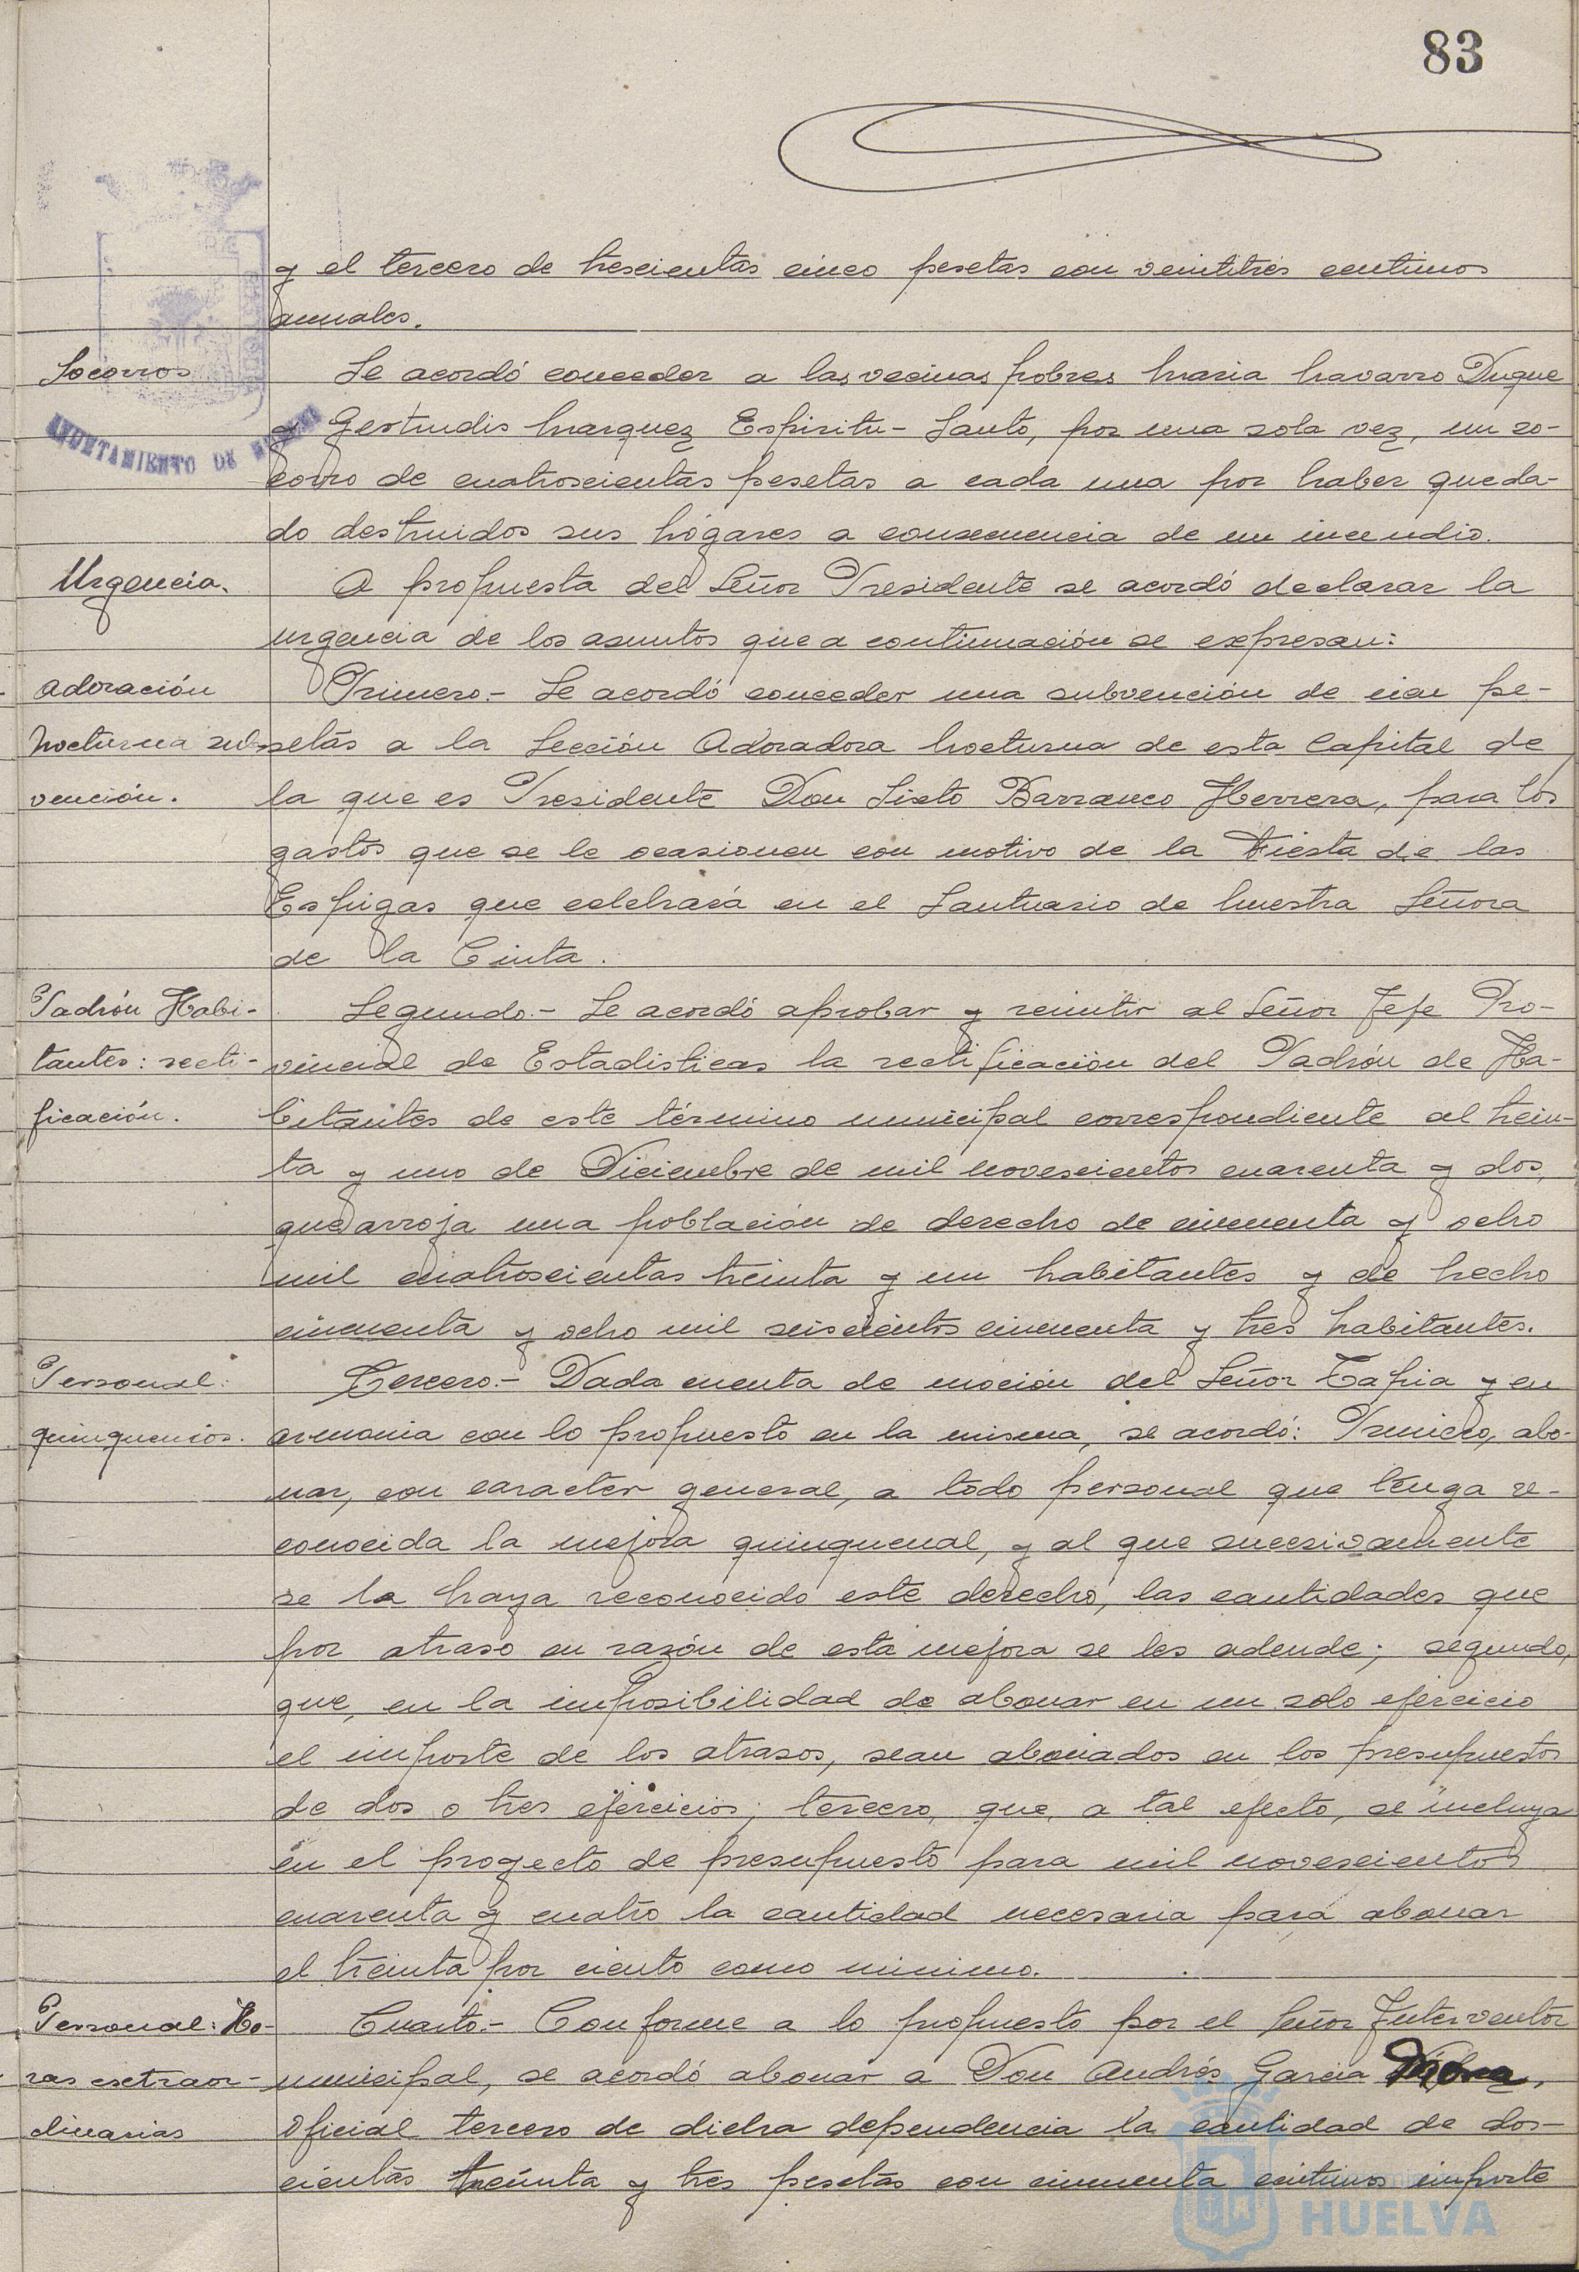 83
y el tercero de trescientas cinco pesetas con veintitrés centimos
anuales.
Socorros
Se acordó conceder a las vecinas pobres Maria Navarro Duque
y Gertrudis Marquez Espiritu-Santo, por una sola vez, un so-
corro de cuatroscientas pesetas a cada una por haber queda-
do destruidos sus hogares a consecuencia de un incendio.
AYUNTAMIENTO DE
Urgencia.
A propuesta del Señor Presidente se acordó declarar la
urgencia de los asuntos que a continuación se expresan:
Adoración
Nocturna sub-
vención.
Primero.- Se acordó conceder una subvención de cien pe-
setas a la Sección Adoradora Nocturna de esta Capital de
la que es Presidente Don Sixto Barranco Herrera, para los
gastos que se le ocasionen con motivo de la Fiesta de las
Espigas que celebrará en el Santuario de Nuestra Señora
de la Cinta.
Padrón Habi-
tantes: recti-
ficación.
Segundo.- Se acordó aprobar y remitir al Señor Jefe Pro-
vincial de Estadisticas la rectificación del Padrón de Ha-
bitantes de este término municipal correspondiente al trein-
ta y uno de Diciembre de mil novescientos cuarenta y dos,
que arroja una población de derecho de cincuenta y ocho
mil cuatroscientas treinta y un habitantes y de hecho
cincuenta y ocho mil seiscientos cincuenta y tres habitantes.
Personal:
quinquenios.
Tercero.- Dada cuenta de moción del Señor Tapia y en
armonia con lo propuesto en la misma, se acordó: Primero, abo-
nar, con caracter general, a todo personal que tenga re-
conocida la mejora quinquenal, y al que sucesivamente
se la haya reconocido este derecho, las cantidades que
por atraso en razón de esta mejora se les adeude; segundo,
que, en la imposibilidad de abonar en un solo ejercicio
el importe de los atrasos, sean abonados en los presupuestos
de dos o tres ejercicios; tercero, que, a tal efecto, se incluya
en el proyecto de presupuesto para mil novescientos
cuarenta y cuatro la cantidad necesaria para abonar
el treinta por ciento como minimo.
Personal: Ho-
ras extraor-
dinarias
Cuarto.- Conforme a lo propuesto por el Señor Interventor
municipal, se acordó abonar a Don Andrés Garcia Mora,
Oficial tercero de dicha dependencia la cantidad de dos-
cientas treinta y tres pesetas con cincuenta centimos importe
HUELVA